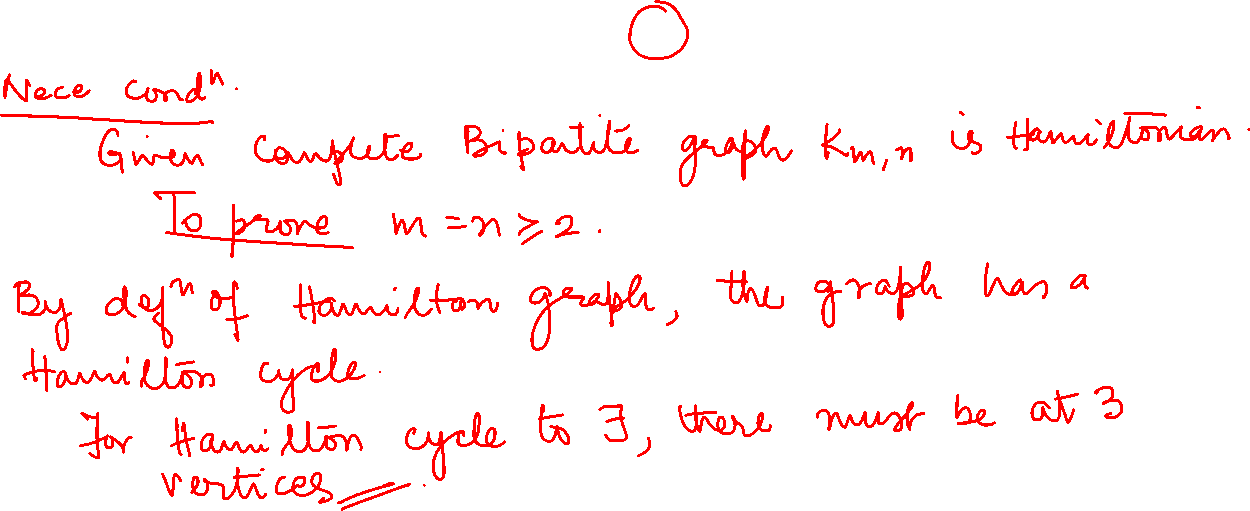 Nece condⁿ.
Given Complete Bipartite graph Kₘ,ₙ is Hamiltonian.
To prove m = n ≥ 2.
By defⁿ of Hamilton graph, the graph has a
Hamilton cycle.
For Hamilton cycle to ∃, there must be at 3
vertices.